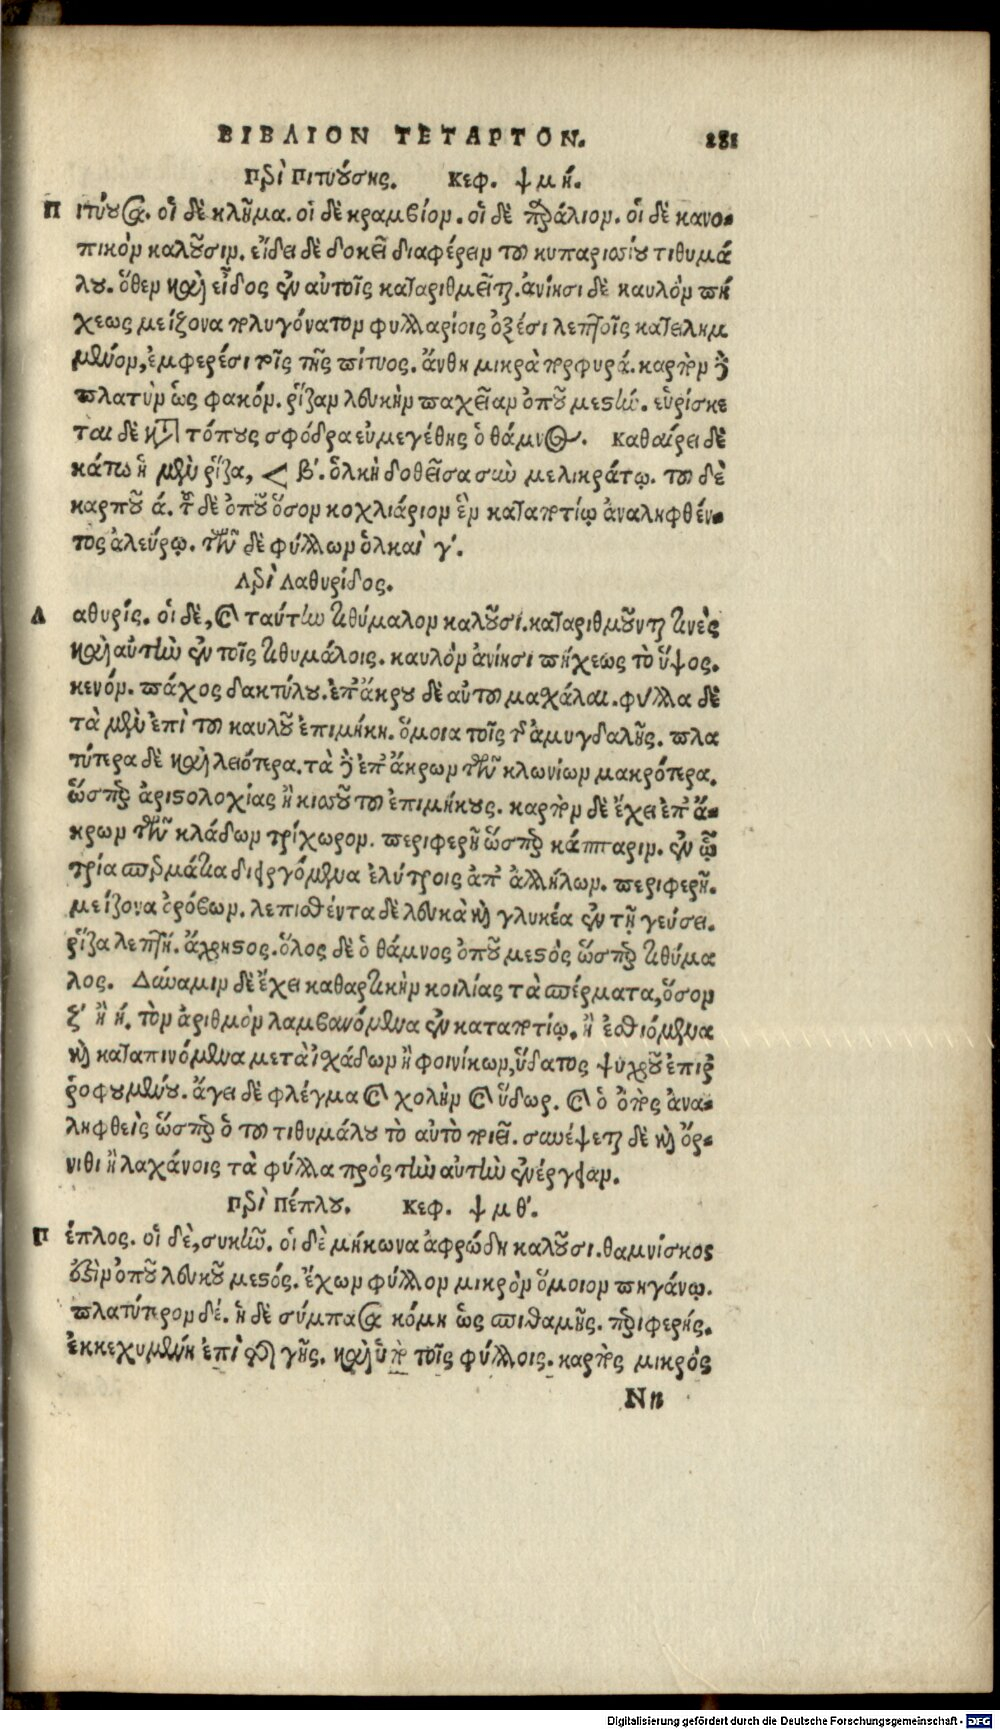 ΒΙΒΛΙΟΝ ΤΕΤΑΡΤΟΝ. 281
Περὶ Πιτυούσης. Κεφ. ψμή.
Πιτύουσα. οἱ δὲ κλῆμα. οἱ δὲ κραμβίον. οἱ δὲ παράλιον. οἱ δὲ κανο-
πικὸν καλοῦσιν. εἴδει δὲ δοκεῖ διαφέρειν τοῦ κυπαρισσίου τιθυμά
λου. ὅθεν καὶ εἶδος ἐν αὐτοῖς καταριθμεῖται. ἀνίησι δὲ καυλὸν πή
χεως μείζονα πολυγόνατον φυλλαρίοις ὀξέσι λεπτοῖς κατειλημ
μένον, ἐμφερέσι τοῖς τῆς πίτυος. ἄνθη μικρὰ πορφυρά. καρπὸν δὲ
πλατὺν ὡς φακόν. ῥίζαν λευκὴν παχεῖαν ὀποῦ μεστήν. εὑρίσκε
ται δὲ κατὰ τόπους σφόδρα εὐμεγέθης ὁ θάμνος. Καθαίρει δὲ
κάτω ἡ μὲν ῥίζα, < β΄. ὁλκὴ δοθεῖσα σὺν μελικράτῳ. τοῦ δὲ
καρποῦ ά. τοῦ δὲ ὀποῦ ὅσον κοχλιάριον ἓν καταποτίῳ ἀναληφθέν-
τος ἀλεύρῳ. τῶν δὲ φύλλων ὁλκαὶ γ΄.
Λερὶ Λαθυρίδος.
Λαθυρίς. οἱ δὲ, καὶ ταύτην τιθύμαλον καλοῦσι. καταριθμοῦνται τινὲς
καὶ αὐτὴν ἐν τοῖς τιθυμάλοις. καυλὸν ἀνίησι πήχεως τὸ ὕψος.
κενόν. πάχος δακτύλου. ἐπ' ἄκρου δὲ αὐτοῦ μαχάλαι. φύλλα δὲ
τὰ μὲν ἐπὶ τοῦ καυλοῦ ἐπιμήκη. ὅμοια τοῖς τῆς ἀμυγδαλῆς. πλα
τύτερα δὲ καὶ λειότερα. τὰ δὲ ἐπ' ἄκρων τῶν κλωνίων μακρότερα.
ὥσπερ ἀριστολοχίας ἢ κισσοῦ τοῦ ἐπιμήκους. καρπὸν δὲ ἔχει ἐπ' ἄ-
κρων τῶν κλάδων τρίχωρον. περιφερῆ ὥσπερ κάππαριν. ἐν ᾧ
τρία σπερμάτια διειργόμενα ἐλύτροις ἀπ' ἀλλήλων. περιφερῆ.
μείζονα ὀρόβων. λεπισθέντα δὲ λευκὰ καὶ γλυκέα ἐν τῇ γεύσει.
ῥίζα λεπτή. ἄχρηστος. ὅλος δὲ ὁ θάμνος ὀποῦ μεστὸς ὥσπερ τιθύμα
λος. Δύναμιν δὲ ἔχει καθαρτικὴν κοιλίας τὰ σπέρματα, ὅσον
ζ΄ ἢ ή. τὸν ἀριθμὸν λαμβανόμενα ἐν καταποτίῳ. ἢ ἐσθιόμενα
καὶ καταπινόμενα μετὰ ἰσχάδων ἢ φοινίκων, ὕδατος ψυχροῦ ἐπιρ
ῥοφουμένου. ἄγει δὲ φλέγμα καὶ χολὴν καὶ ὕδωρ. καὶ ὁ ὀπὸς ἀνα-
ληφθεὶς ὥσπερ ὁ τοῦ τιθυμάλου τὸ αὐτὸ ποιεῖ. συνέψεται δὲ καὶ ὄρ-
νιθι ἢ λαχάνοις τὰ φύλλα πρὸς τὴν αὐτὴν ἐνέργειαν.
Περὶ Πέπλου. Κεφ. ψμθ΄.
Πέπλος. οἱ δὲ, συκῆν. οἱ δὲ μήκωνα ἀφρώδη καλοῦσι. θαμνίσκος
ἐστὶν ὀποῦ λευκοῦ μεστός. ἔχων φύλλον μικρὸν ὅμοιον πηγάνῳ.
πλατύτερον δέ. ἡ δὲ σύμπασα κόμη ὡς σπιθαμῆς. περιφερής.
ἐκκεχυμένη ἐπὶ τῆς γῆς. καὶ ὑπὸ τοῖς φύλλοις. καρπὸς μικρὸς
Nn
Digitalisierung gefördert durch die Deutsche Forschungsgemeinschaft - DFG